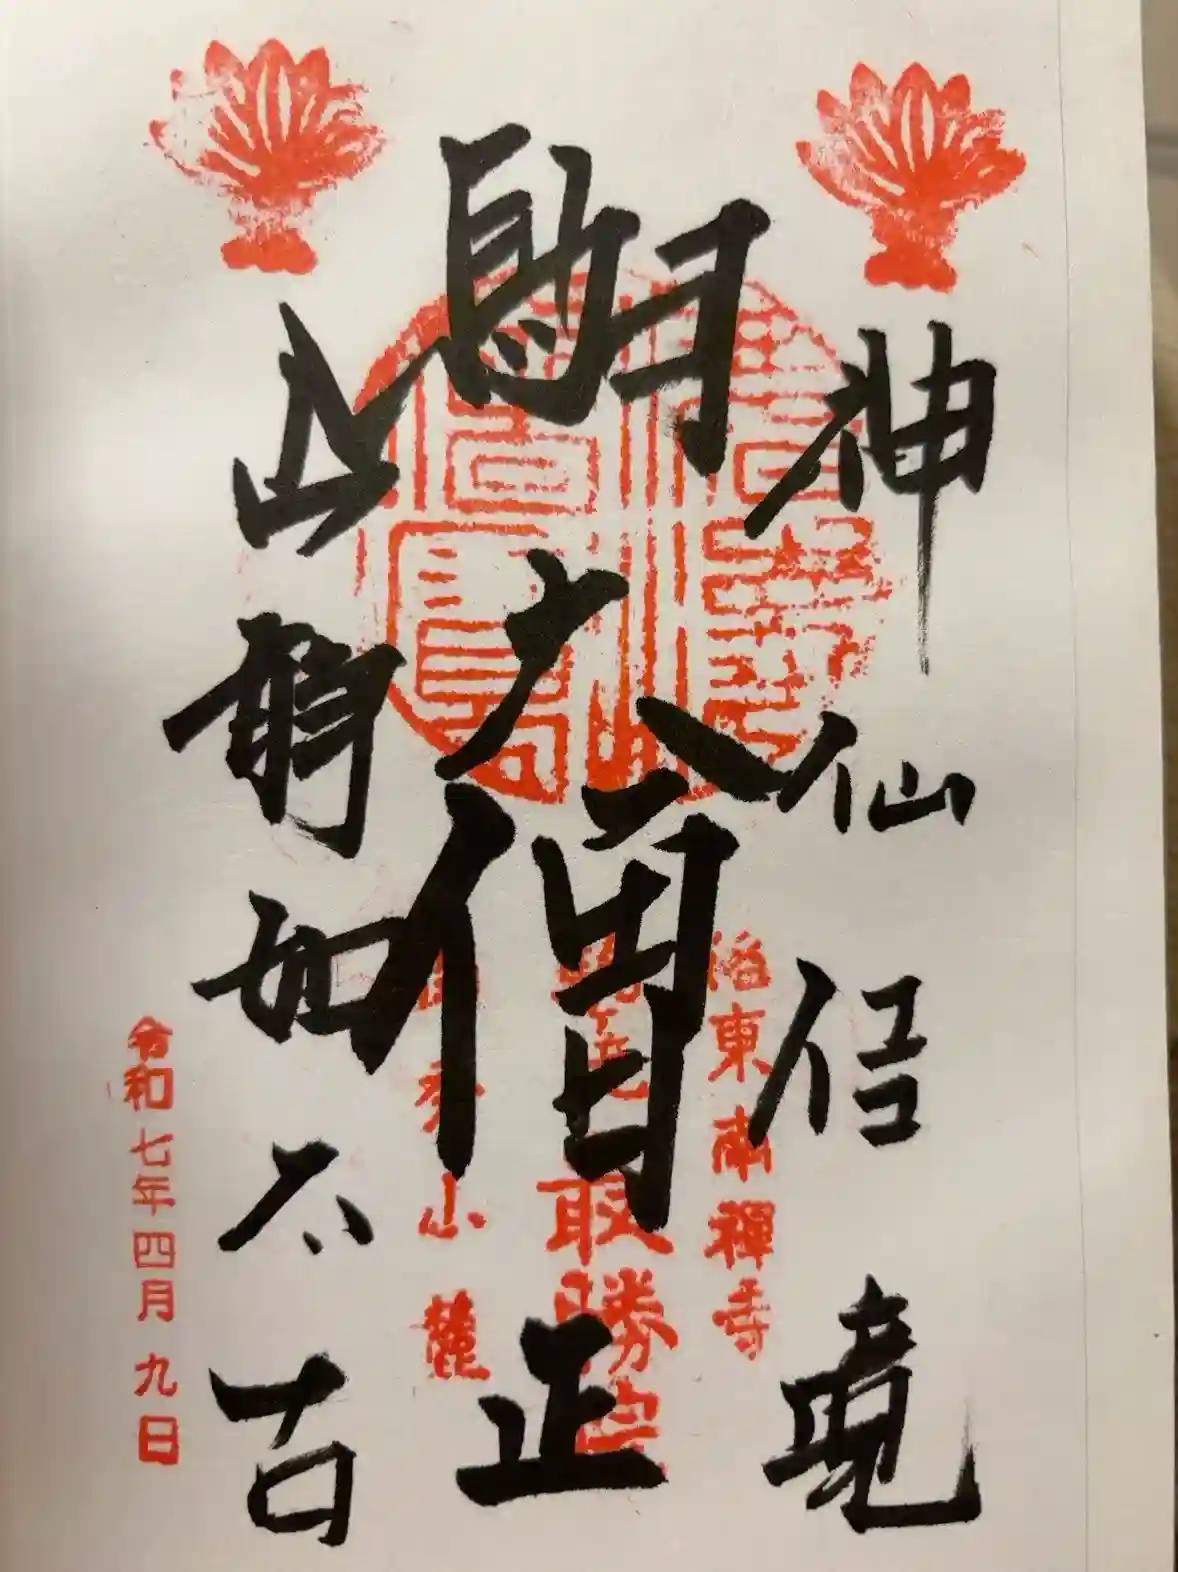 神仙佳境
駒大僧正
山静如太古
洛東南禪寺
最勝院
麓
令和七年四月九日